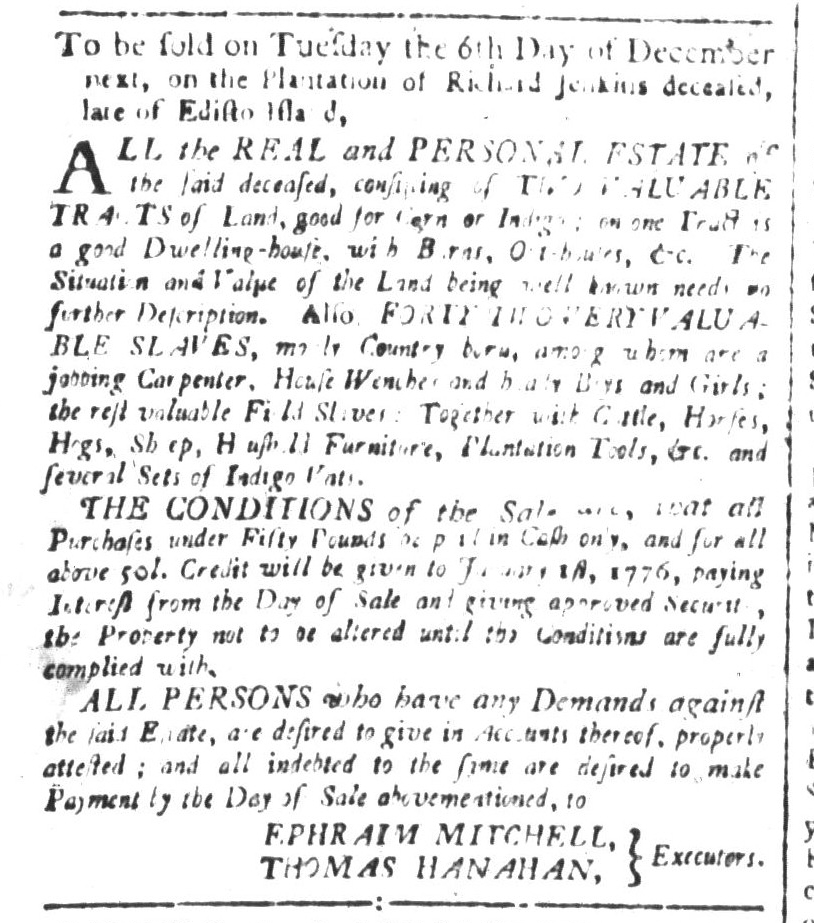 To be ſold on Tueſday the 6th Day of December
next, on the Plantation of Richard Jenkins deceaſed,
late of Ediſto Iſland,
ALL the REAL and PERSONAL ESTATE of
the ſaid deceaſed, conſiſting of TWO VALUABLE
TRACTS of Land, good for Corn or Indigo; on one Tract is
a good Dwelling-houſe, with Barns, Out-houſes, &c. The
Situation and Value of the Land being well known needs no
further Deſcription. Alſo, FORTY TWO VERY VALUA-
BLE SLAVES, moſtly Country born, among whom are a
jobbing Carpenter, Houſe Wenches and handy Boys and Girls;
the reſt valuable Field Slaves: Together with Cattle, Horſes,
Hogs, Sheep, Houſhold Furniture, Plantation Tools, &c. and
ſeveral Sets of Indigo Vats.
THE CONDITIONS of the Sale are, that all
Purchaſes under Fifty Pounds be paid in Caſh only, and for all
above 50l. Credit will be given to January 1ſt, 1776, paying
Intereſt from the Day of Sale and giving approved Security,
the Property not to be altered until the Conditions are fully
complied with.
ALL PERSONS who have any Demands againſt
the ſaid Eſtate, are deſired to give in Accounts thereof, properly
atteſted; and all indebted to the ſame are deſired to make
Payment by the Day of Sale abovementioned, to
EPHRAIM MITCHELL,
THOMAS HANAHAN, } Executors.